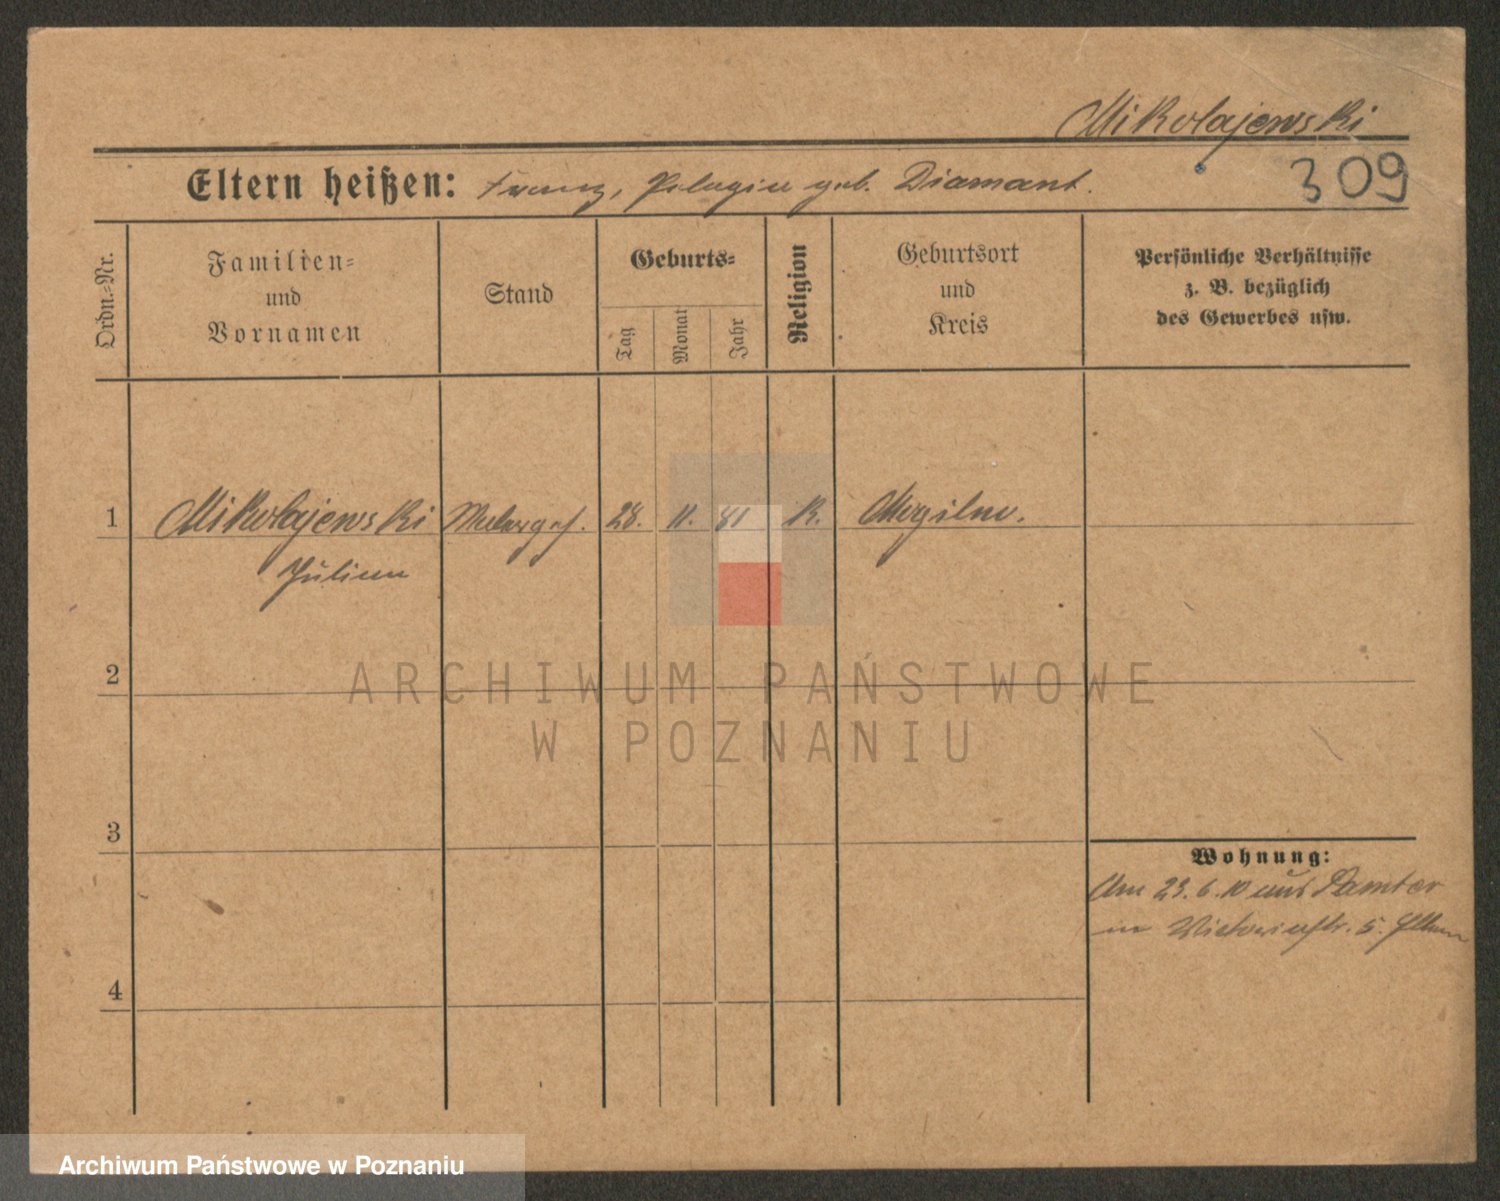 Mikolajewski
309
Eltern heißen: Franz, Pelagia geb. Diamant.
Ordn.-Nr.
Familien-
und
Vornamen
Stand
Geburts-
Tag
Monat
Jahr
Religion
Geburtsort
und
Kreis
Persönliche Verhältnisse
z. B. bezüglich
des Gewerbes usw.
1 Mikolajewski Malergeh. 28. 11. 81 K. Mogilno.
Julian
2
ARCHIWUM PAŃSTWOWE
W POZNANIU
3
Wohnung:
Am 23.6.10 aus Samter
in Victoriastr. 5.
4
Archiwum Państwowe w Poznaniu